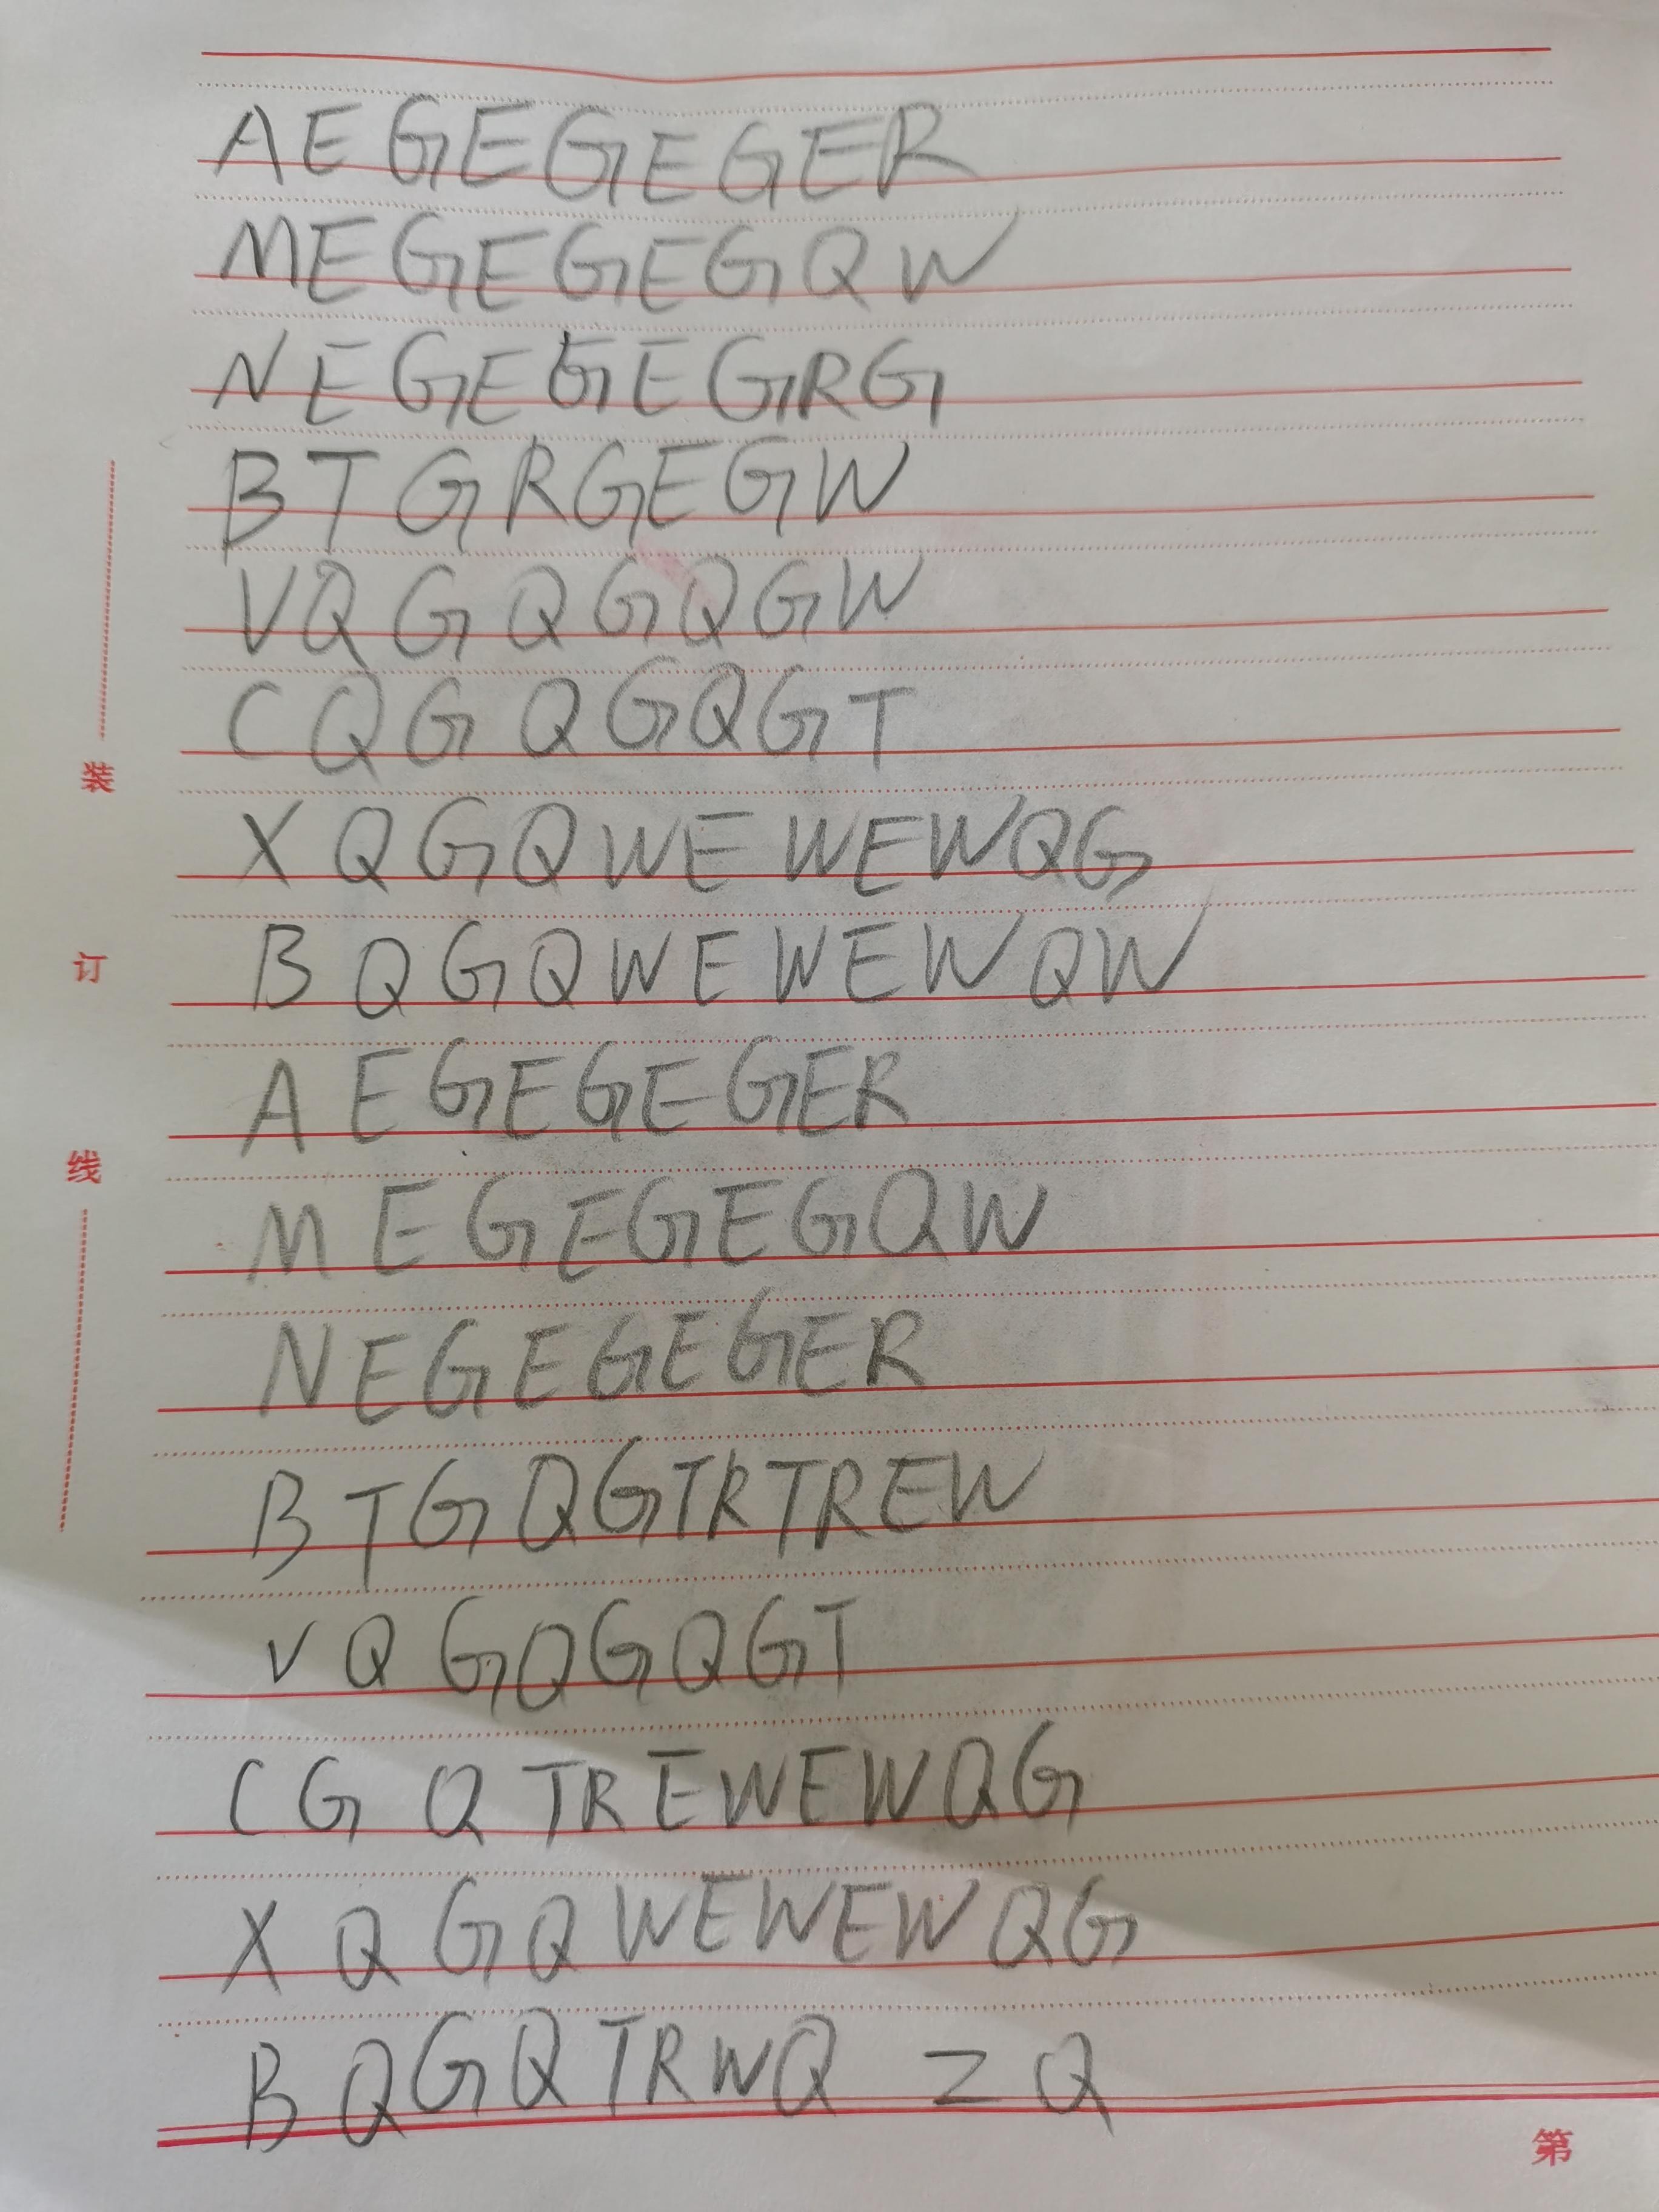 AEGEGEGER
MEGEGEGQW
NEGEGEGRG
BTGRGEGW
VQGQGQGW
CQGQGQGT
XQGQWEWEWQG
BQGQWEWEWQW
AEGEGEGER
MEGEGEGQW
NEGEGEGER
BTGQGTRTREW
VQGQGQGT
CGQTREWEWQG
XQGQWEWEWQG
BQGQTRWQ ZQ
装
订
线
第